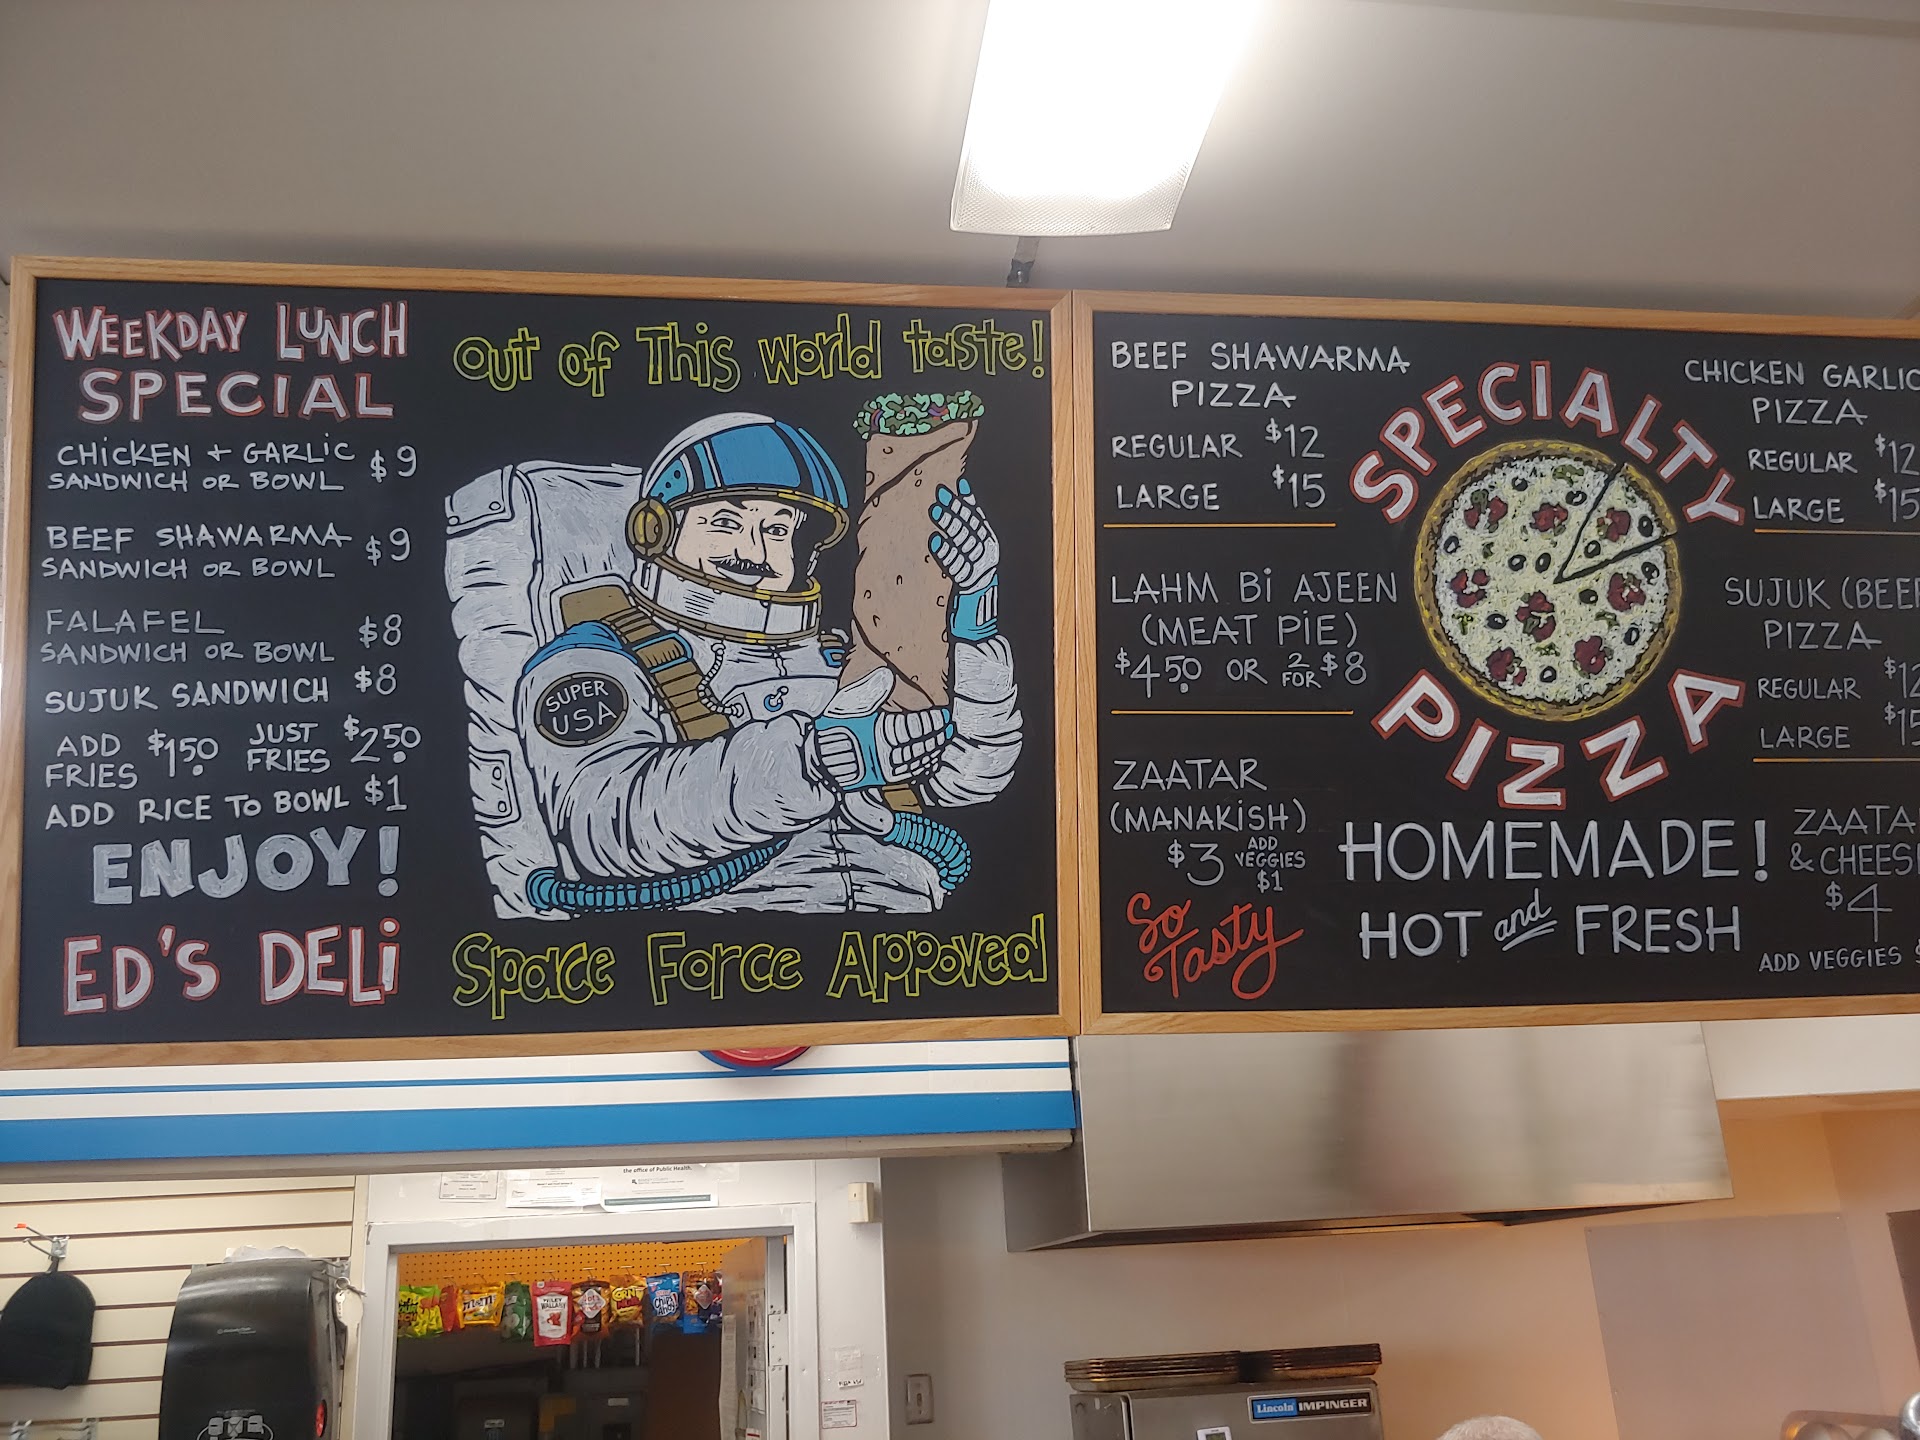 WEEKDAY LUNCH
SPECIAL
CHICKEN + GARLIC
SANDWICH OR BOWL $9
BEEF SHAWARMA
SANDWICH OR BOWL $9
FALAFEL
SANDWICH OR BOWL $8
SUJUK SANDWICH $8
ADD FRIES $1.50 JUST FRIES $2.50
ADD RICE TO BOWL $1
ENJOY!
ED'S DELi
Out of This World taste!
SUPER
USA
Space Force Appoved
BEEF SHAWARMA
PIZZA
REGULAR $12
LARGE $15
LAHM Bi AJEEN
(MEAT PiE)
$4.50 OR 2 FOR $8
ZAATAR
(MANAKiSH)
$3 ADD VEGGIES $1
So
Tasty
SPECIALTY
PIZZA
HOMEMADE!
HOT and FRESH
CHICKEN GARLIC
PIZZA
REGULAR $12
LARGE $15
SUJUK (BEEF
PIZZA
REGULAR $12
LARGE $15
ZAATA
& CHEES
$4
ADD VEGGIES $
the office of Public Health.
Lincoln IMPINGER